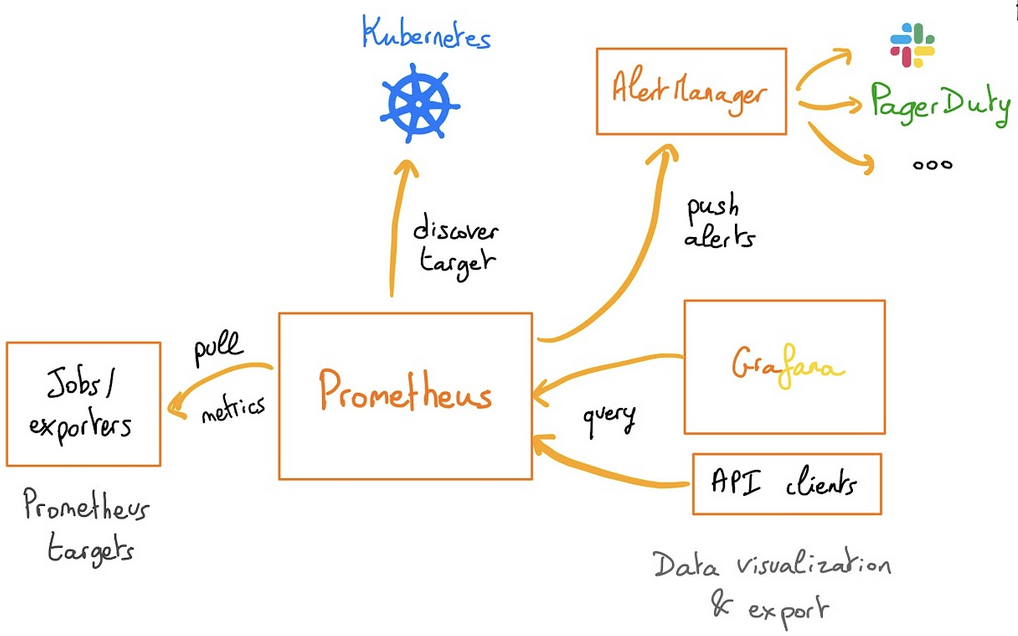 Kubernetes
AlertManager
PagerDuty
ooo
discover
target
push
alerts
pull
metrics
Jobs/
exporters
Prometheus
Grafana
query
API clients
Prometheus
targets
Data visualization
& export